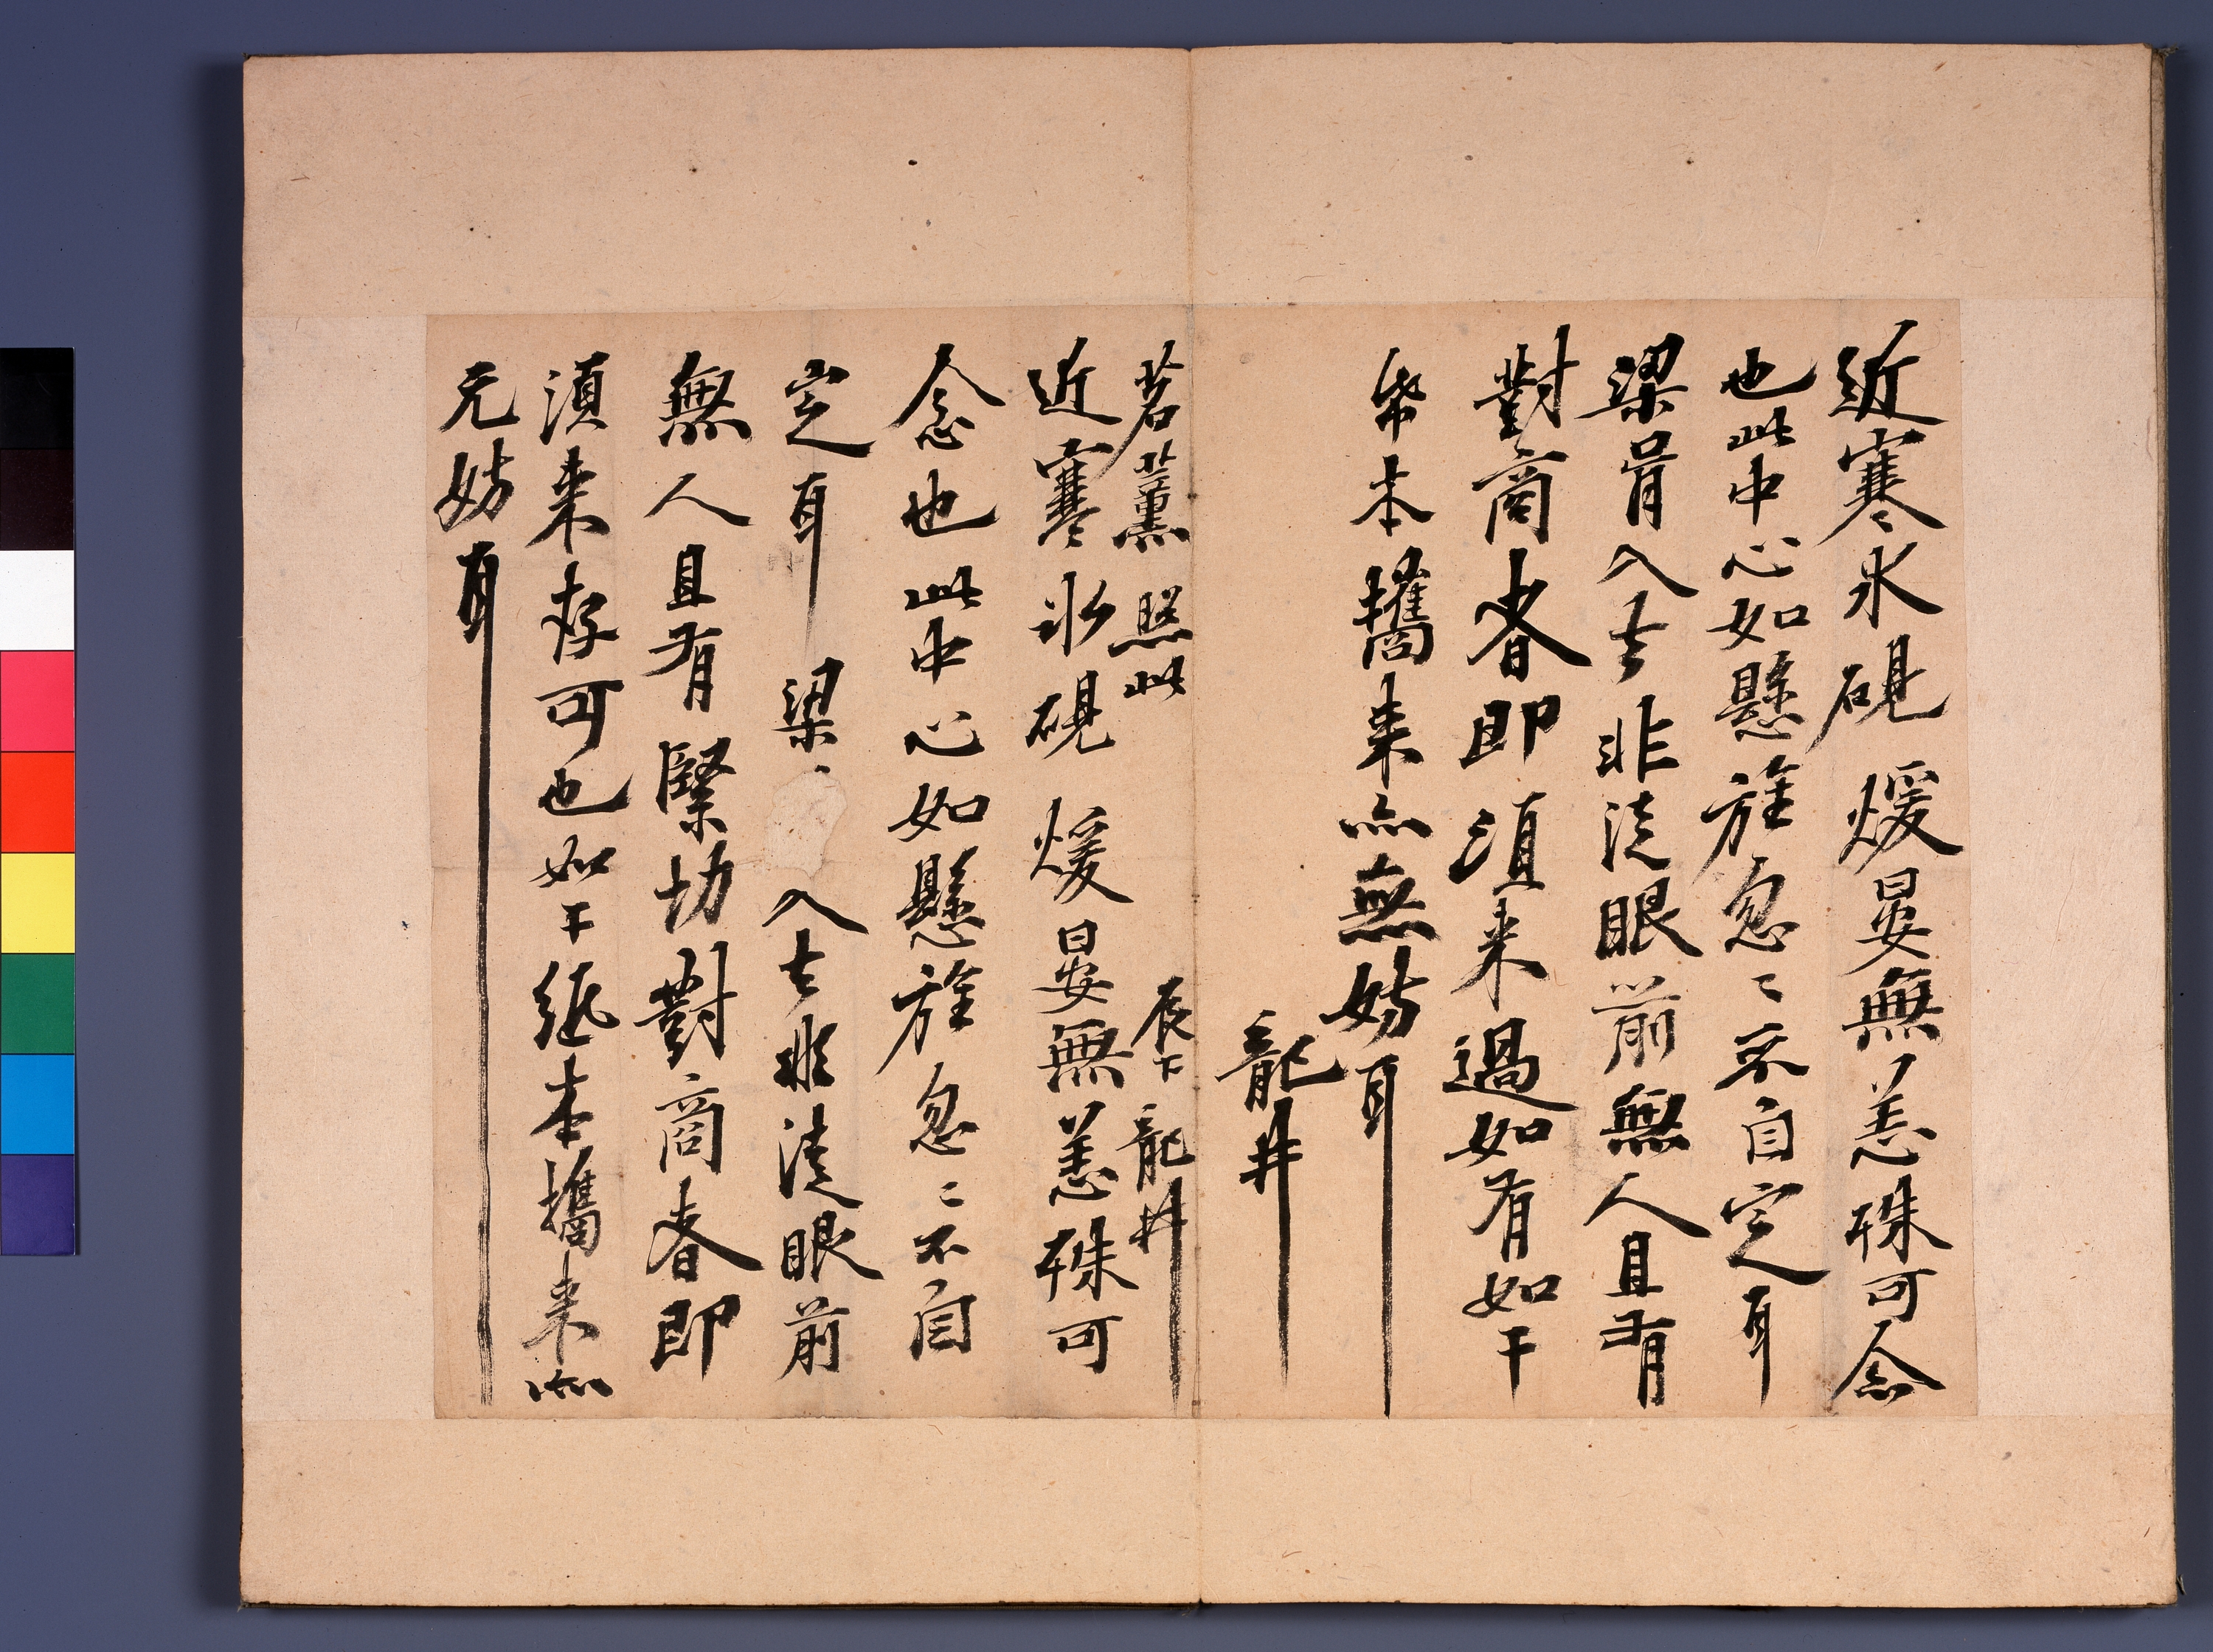 近寒氷硯煖晏無恙殊可念
也此中心如懸旌忽〻不自定耳
梁肎入去非淺眼前無人且有
對商者即須来過如有如干
紙本攜来亦無妨耳
龍井
茗薰照此
辰下龍井
近寒氷硯煖晏無恙殊可
念也此中心如懸旌忽〻不自
定耳梁入去非淺眼前
無人且有緊切對商者即
須来存可也如干紙本攜来亦
无妨耳